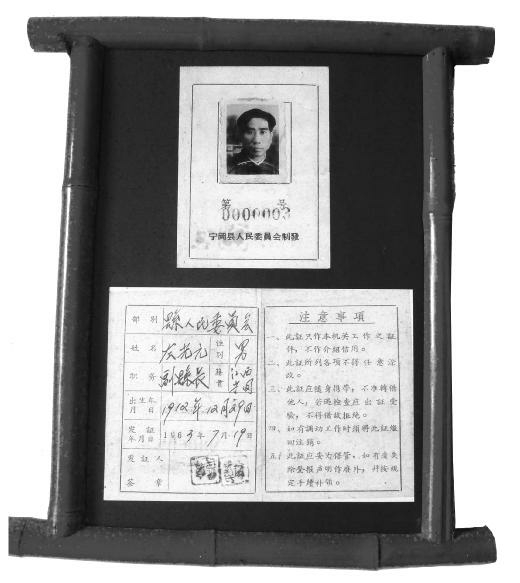 第 号
0000003
宁岡县人民委員会制發
部别 縣人民委員会
姓名 左光元 性别 男
职务 副縣長 籍貫 江西宁岡
出生年月日 1912年12月29日
发証年月日 1963年7月19日
发証人
签章
注意事項
一、此証只作本机关工作之証
件，不作介紹信用。
二、此証所列各項不得任意涂
改。
三、此証应随身携带，不准轉借
他人，若遇检查应出証受
驗，不得借故拒絕。
四、如有調动工作时須将此証繳
回注銷。
五、此証应妥为保管，如有遺失
除登报声明作廢外，幷按規
定手續补領。